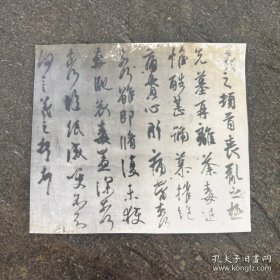 羲之頓首喪亂之極
先墓再離荼毒追
惟酷甚號慕摧絕
痛貫心肝痛當奈何
奈何雖即脩復未獲
奔馳哀毒益深奈何
奈何臨紙感哽不知
何言羲之頓首頓首
孔夫子旧书网